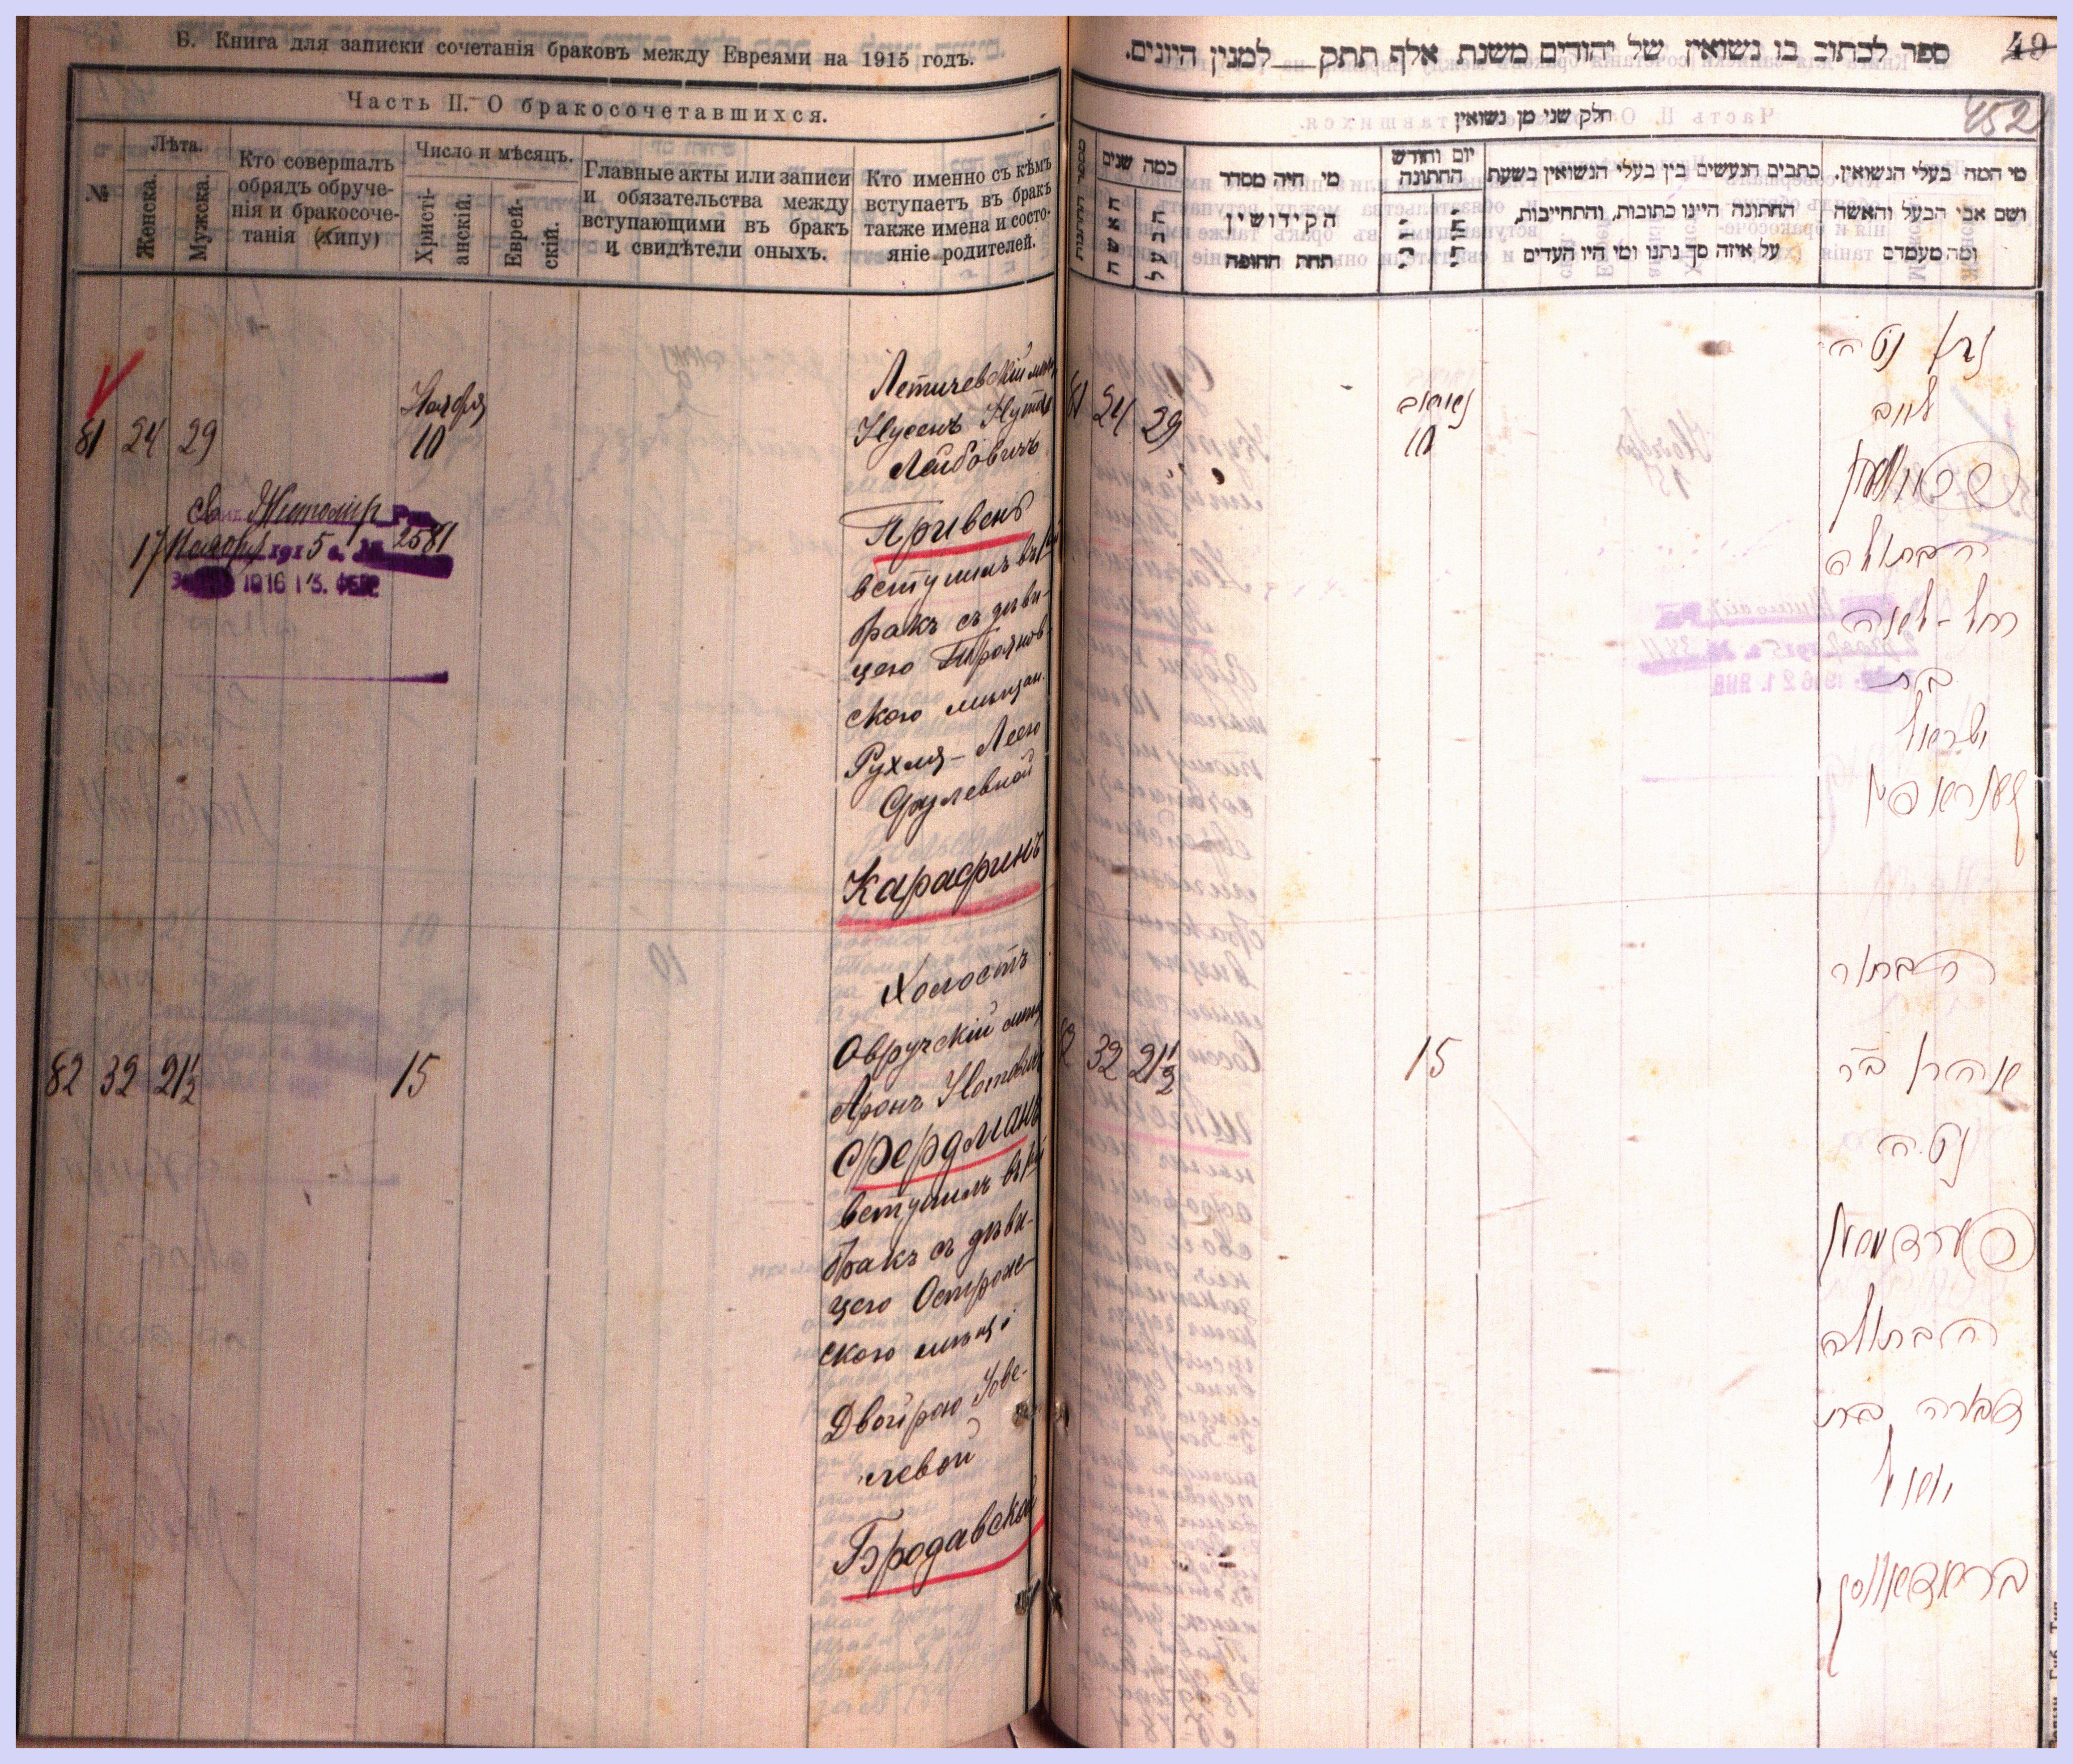 Б. Книга для записки сочетанія браковъ между Евреями на 1915 годъ.
Часть II. О бракосочетавшихся.
№
Лѣта.
Женска.
Мужска.
Кто совершалъ
обрядъ обруче-
нія и бракосоче-
танія (хипу)
Число и мѣсяцъ.
Христі-
анскій.
Еврей-
скій.
Главные акты или записи
и обязательства между
вступающими въ бракъ
и свидѣтели оныхъ.
Кто именно съ кѣмъ
вступаетъ въ бракъ
также имена и состо-
яніе родителей.
81 24 29
Ноября
10
Летичевскій
Нусенъ Нута
Лейбовичъ
Привенъ
вступилъ въ
бракъ съ дѣви-
цею Троянов
скою мѣщан.
Рухля-Лею
Срулевной
Карафинъ
Св Житомір
17 Ноября 1915 г. № 2581
1916 13. ФЕВ
82 32 21½
15
Холостъ
Овручскій мѣщ
Аронъ Нотовичъ
Фердманъ
вступилъ въ
бракъ съ дѣви-
цею Острож-
скою мѣщ
Двойрою Іове-
левой
Бродавской
ספר לכתוב בו נשואין של יהודים משנת אלף תתק__למנין היונים.
49
452
חלק שני מן נשואין
מספר החתונות
כמה שנים
האשה
הבעל
מי היה מסדר
הקידושין
תחת החופה
יום וחודש
החתונה
כתבים הנעשים בין בעלי הנשואין בשעת
החתונה היינו כתובות, והתחייבות,
על איזה סך נתנו ומי היו העדים
מי המה בעלי הנשואין.
ושם אבי הבעל והאשה
ומה מעמדם
81 24 29
נאיאב
10
נטה
לייב
הבתולה
רחל-לאה
בת
ישראל
קאראפין
32 21½
15
הבחור
אהרן ב״ר
נטה
פערדמאן
הבתולה
דבורה בת
יואל
בראדאווסקי